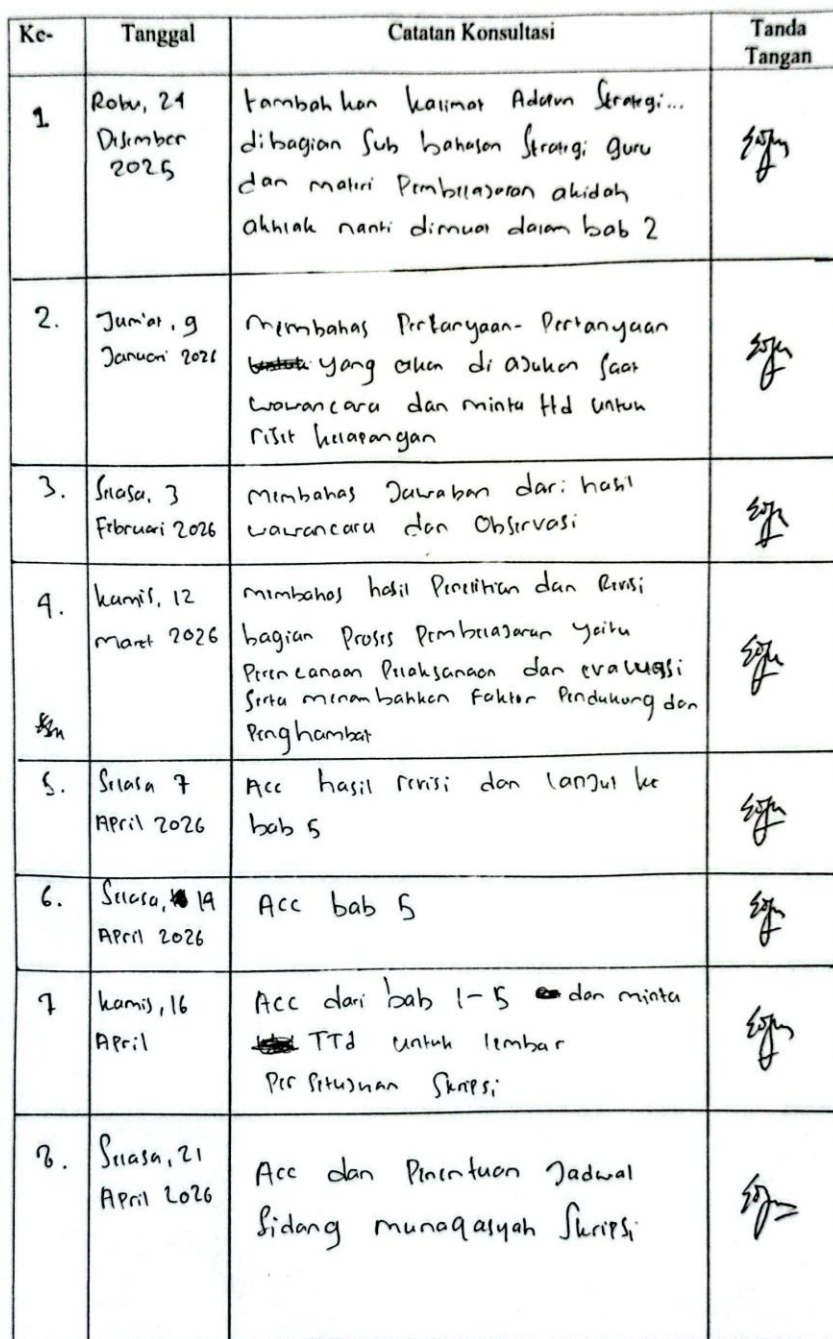 Ke- Tanggal Catatan Konsultasi Tanda Tangan
1 Rabu, 24 Desember 2025
tambahkan kalimat Adapun Strategi...
dibagian Sub bahasan Strategi guru
dan materi Pembelajaran akidah
akhlak nanti dimuat dalam bab 2
2. Jum'at, 9 Januari 2026
Membahas Pertanyaan-Pertanyaan
yang akan di ajukan saat
wawancara dan minta ttd untuk
riset kelapangan
3. Selasa, 3 Februari 2026
Membahas Jawaban dari hasil
wawancara dan Observasi
4. Kamis, 12 Maret 2026
membahas hasil Penelitian dan Revisi
bagian Proses Pembelajaran yaitu
Perencanaan Pelaksanaan dan evaluasi
Serta menambahkan Faktor Pendukung dan
Penghambat
5. Selasa 7 April 2026
Acc hasil revisi dan lanjut ke
bab 5
6. Selasa, 14 April 2026
Acc bab 5
7 Kamis, 16 April
Acc dari bab 1-5 dan minta
TTd untuk lembar
Persetujuan Skripsi
8. Selasa, 21 April 2026
Acc dan Penentuan Jadwal
Sidang munaqasyah Skripsi